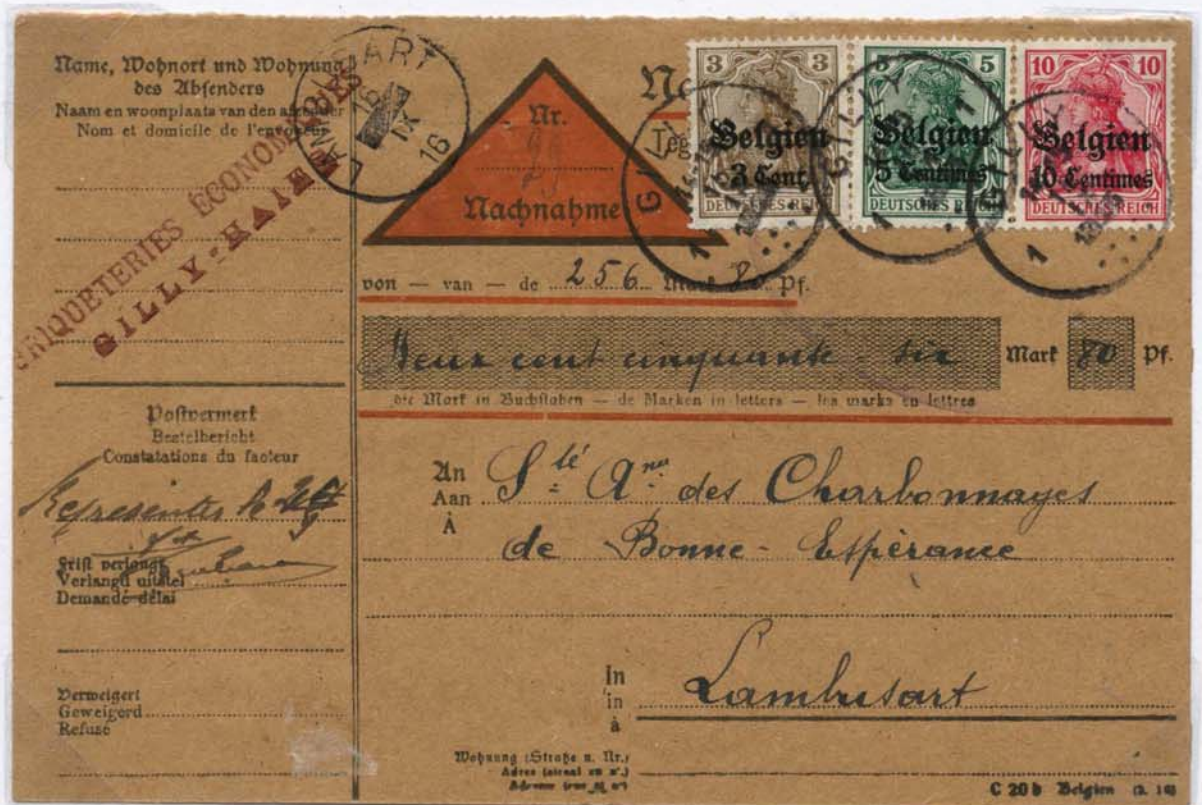 Name, Wohnort und Wohnung
des Absenders
Naam en woonplaats van den afzender
Nom et domicile de l'envoyeur
BRIQUETERIES ÉCONOMIQUES
GILLY-HAIES
SART
16
IX
16
Nr.
Nachnahme
3 3
Belgien
3 Cent.
DEUTSCHES REICH
5 5
Belgien
5 Centimes
DEUTSCHES REICH
10 10
Belgien
10 Centimes
DEUTSCHES REICH
GILLY
1 1
von — van — de 256 Mark 80 Pf.
Deux cent cinquante-six Mark 80 Pf.
die Mark in Buchstaben — de Marken in letters — les marks en lettres
Postvermerk
Bestelbericht
Constatations du facteur
Représenter le
Frist verlangt
Verlangd uitstel
Demande délai
Verweigert
Geweigerd
Refusé
An
Aan
À
Sté Ame des Charbonnages
de Bonne-Espérance
In
in
à
Lambusart
Wohnung (Straße u. Nr.)
C 20 b Belgien (3. 16)